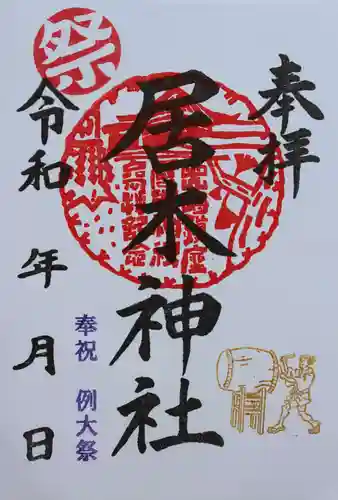 奉拝
居木神社
祭
令和 年 月 日
奉祝 例大祭